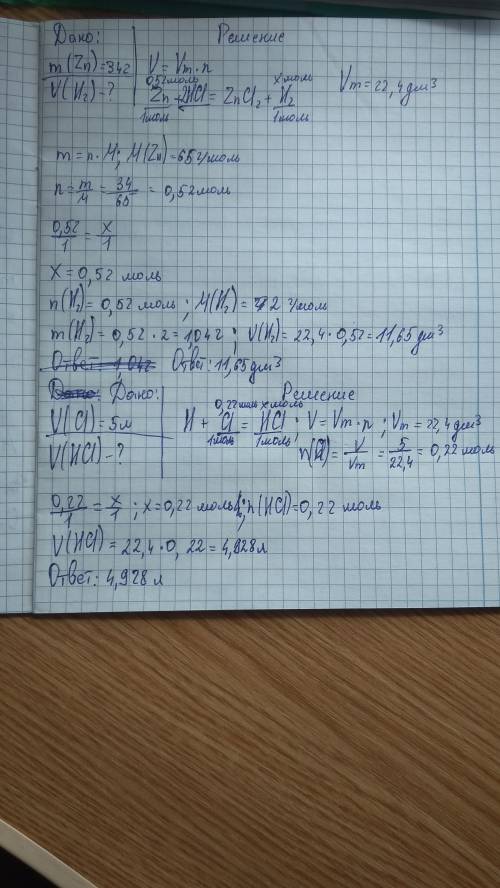 Дано:
Решение
m(Zn)=34г
V(H₂)-?
V=Vm·n
0,52моль
x моль
Zn+2HCl=ZnCl₂+H₂
1моль
1моль
Vm=22,4дм³
m=n·M; M(Zn)=65г/моль
n=m/M=34/65=0,52моль
0,52/1=x/1
x=0,52 моль
n(H₂)=0,52 моль; M(H₂)=2 г/моль
m(H₂)=0,52·2=1,04г; V(H₂)=22,4·0,52=11,65дм³
Ответ: 1,04г Ответ: 11,65дм³
Дано: Дано:
Решение
V(Cl)=5л
V(HCl)-?
0,22моль x моль
H+Cl=HCl; V=Vm·n; Vm=22,4дм³
1моль 1моль
n(Cl)=V/Vm=5/22,4=0,22моль
0,22/1=x/1; x=0,22 моль; n(HCl)=0,22 моль
V(HCl)=22,4·0,22=4,928л
Ответ: 4,928 л